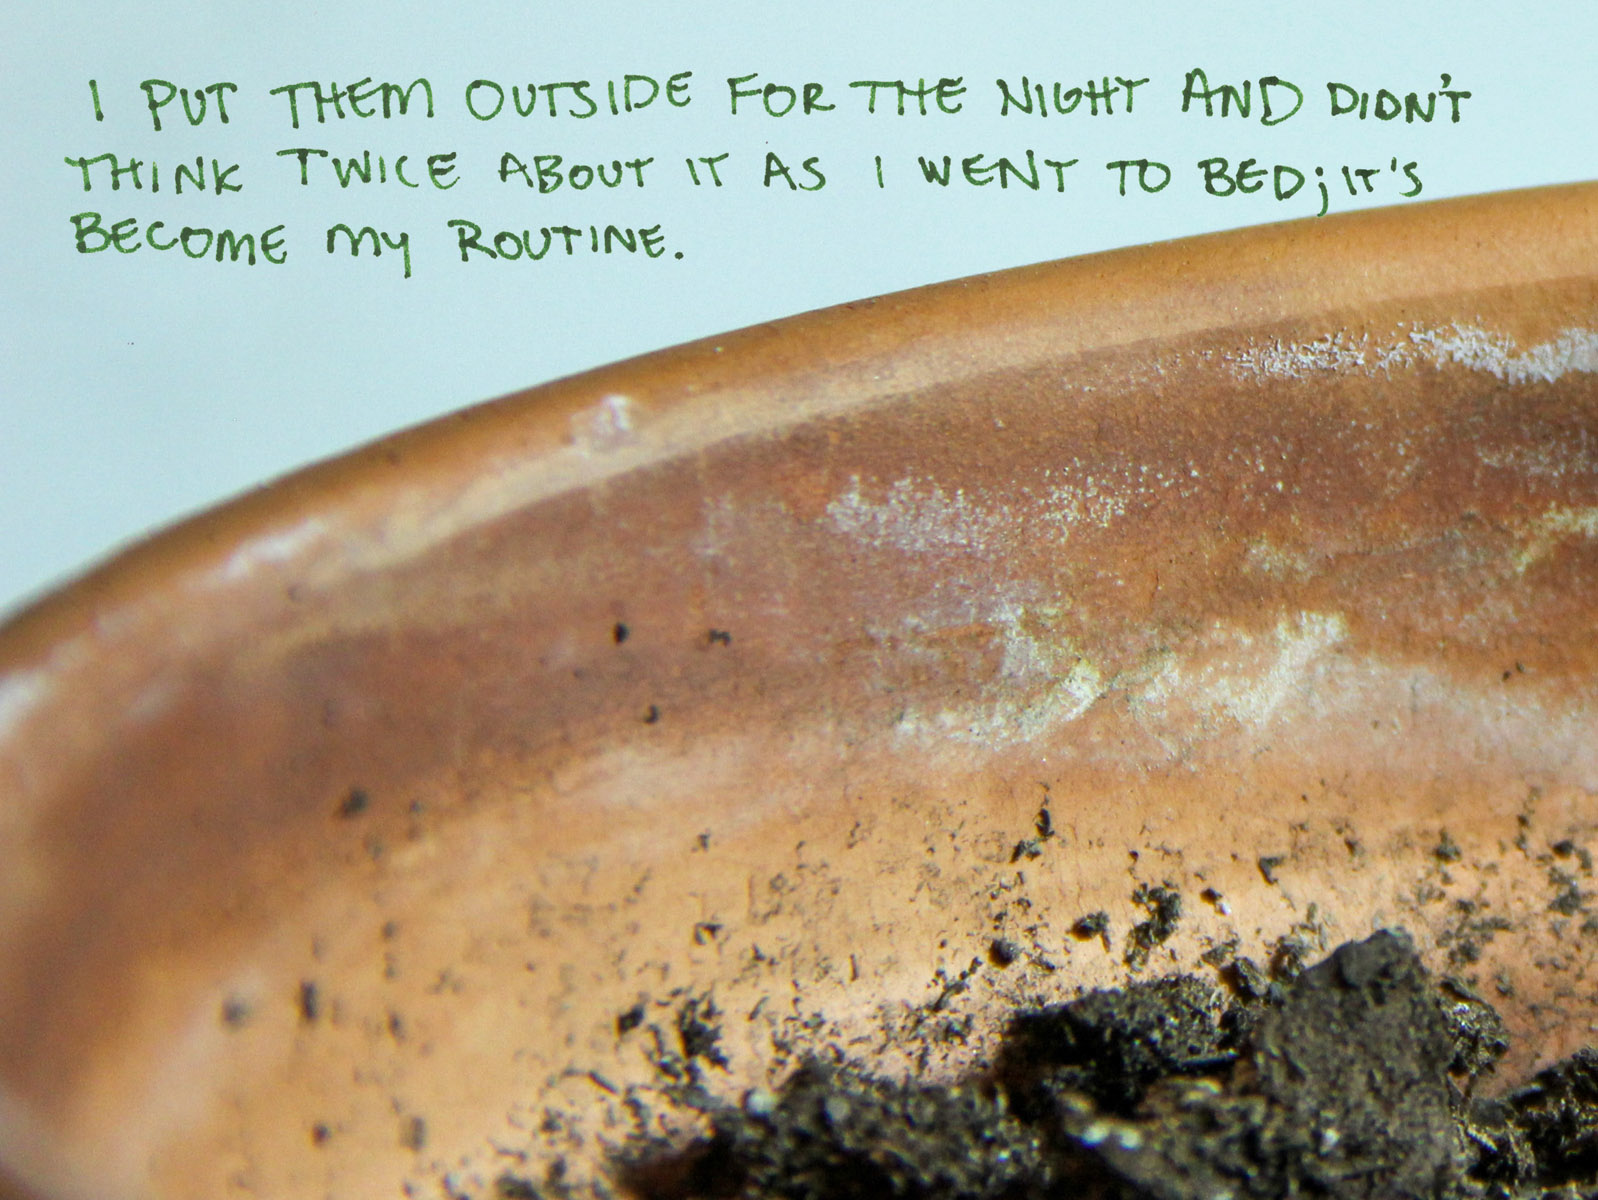 I PUT THEM OUTSIDE FOR THE NIGHT AND DIDN'T
THINK TWICE ABOUT IT AS I WENT TO BED; IT'S
BECOME MY ROUTINE.